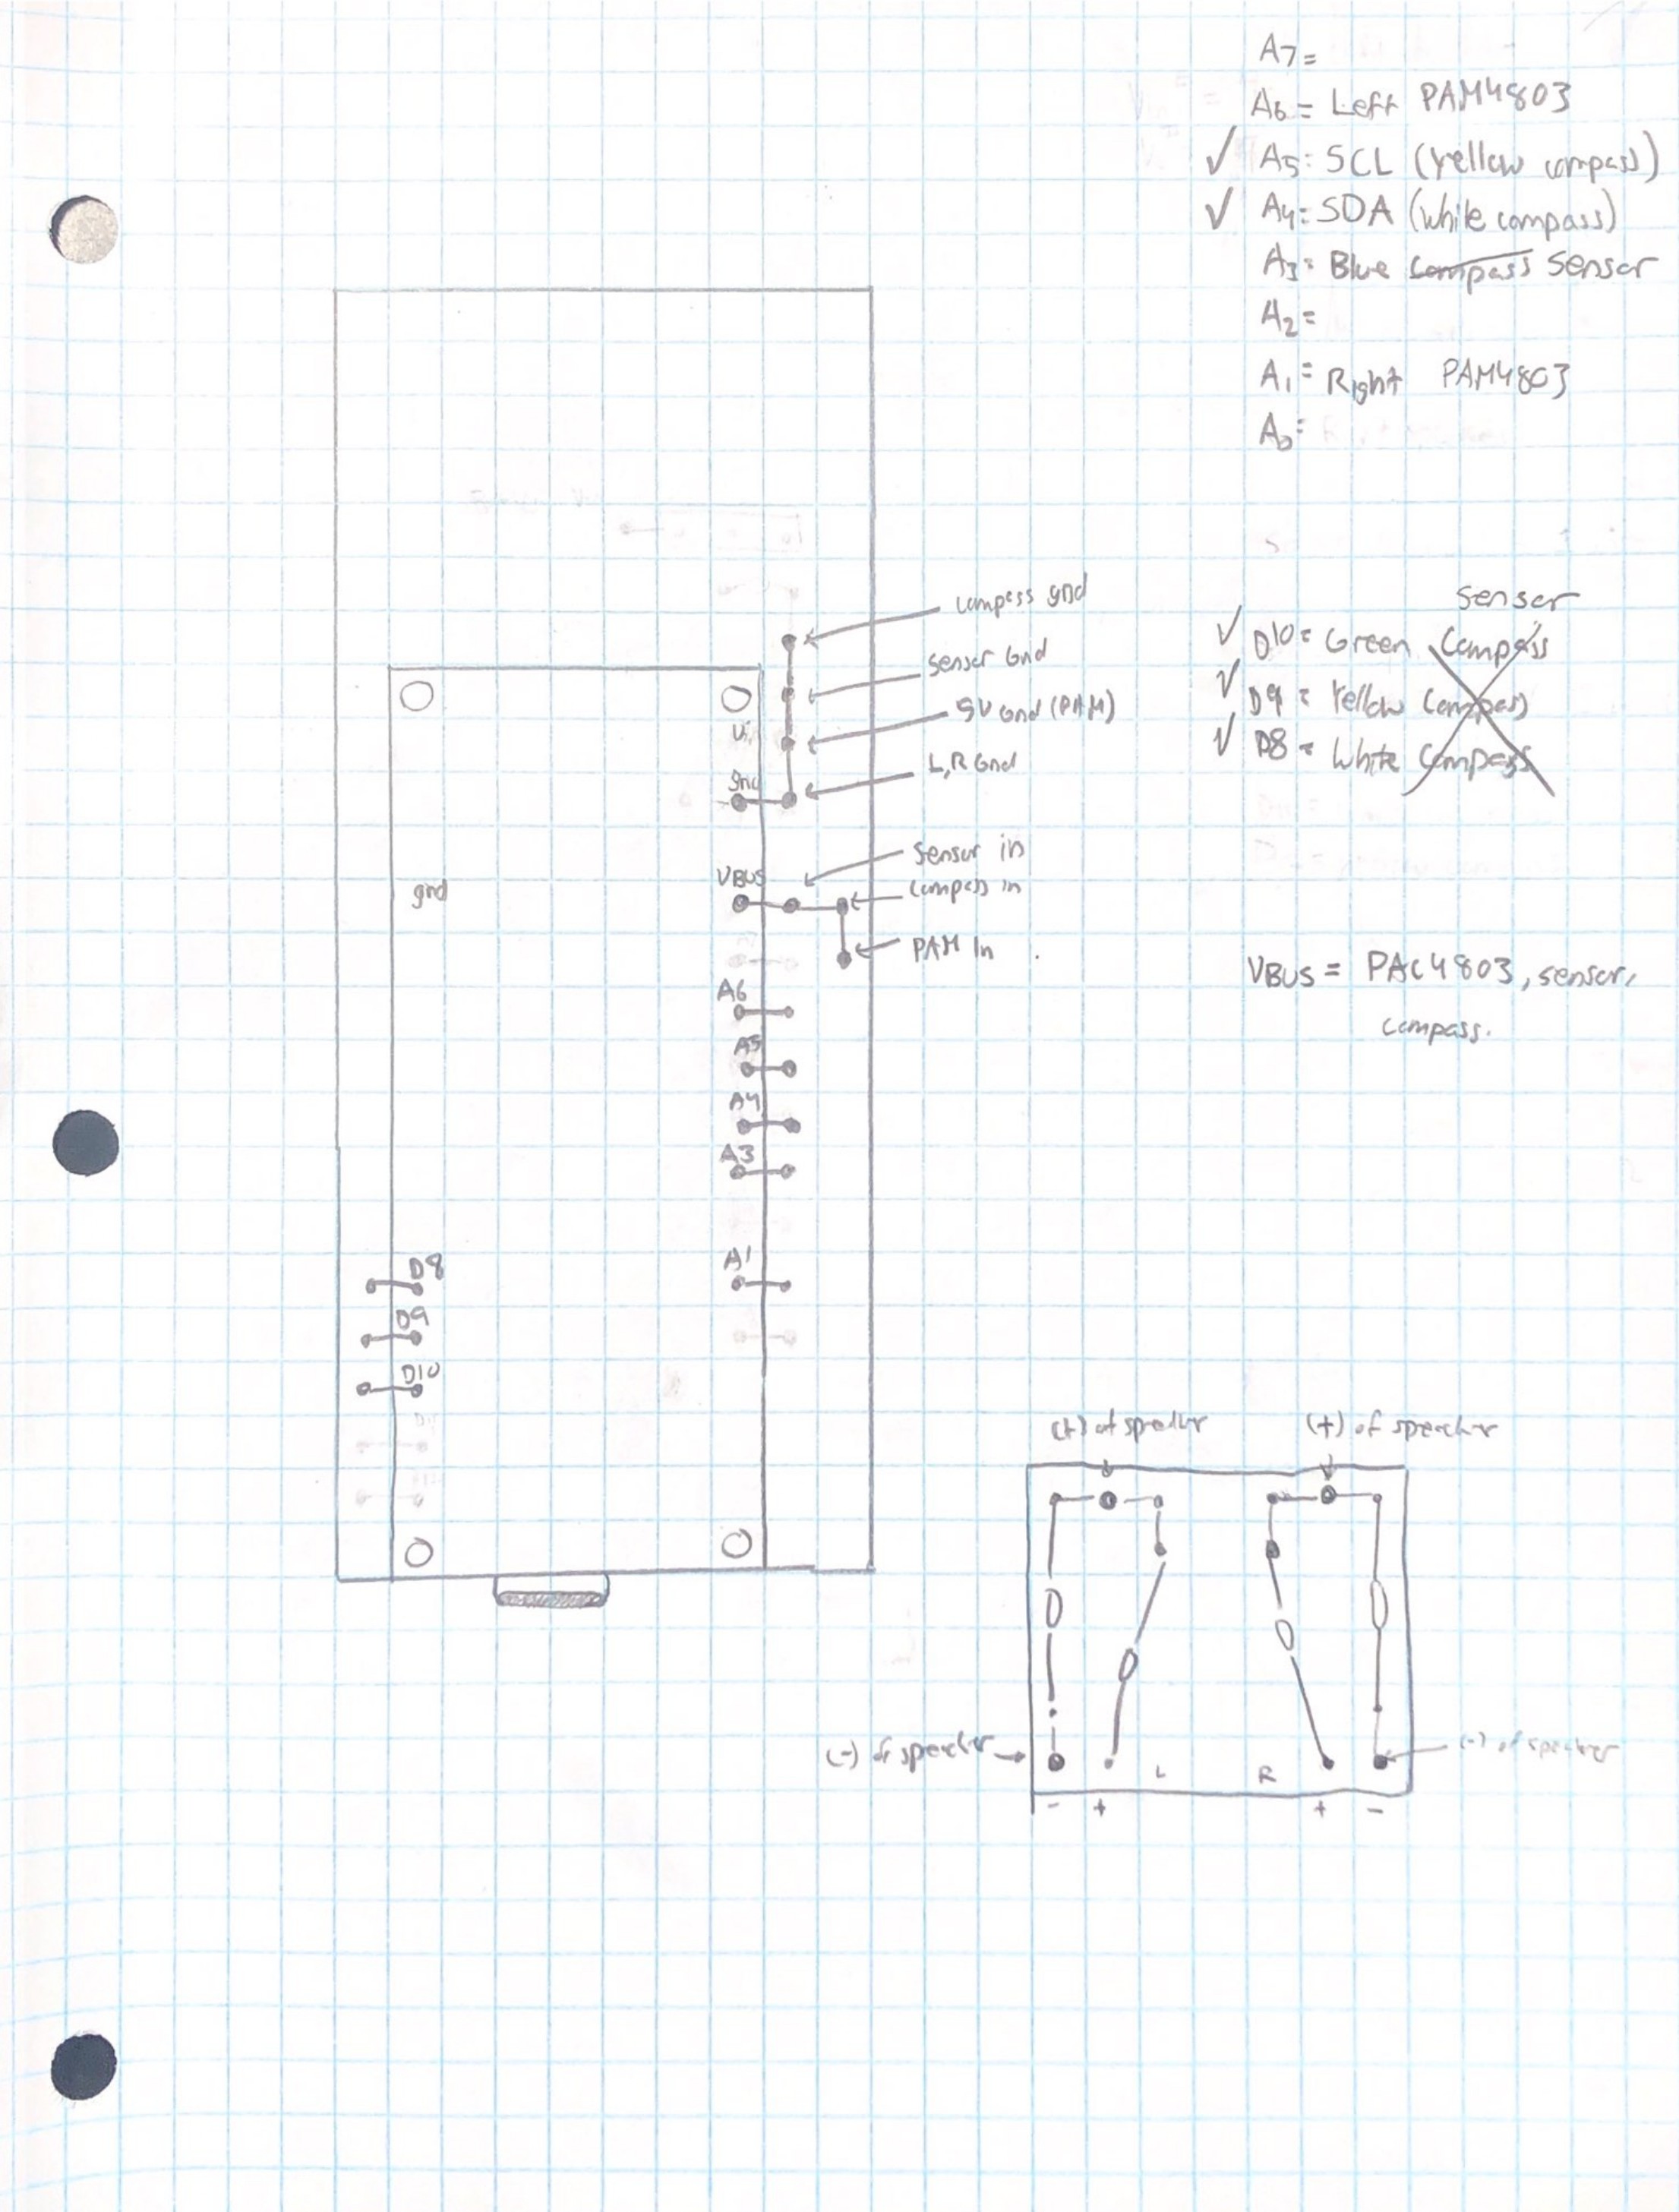 A7=
A6= Left PAM4803
✓ A5: SCL (Yellow compass)
✓ A4: SDA (white compass)
A3: Blue compass Sensor
A2=
A1= Right PAM4803
A0=
compass gnd
Sensor Gnd
5V Gnd (PAM)
Vi
L,R Gnd
gnd
Sensor in
VBUS
compass in
gnd
PAM In
A6
A5
A4
A3
A1
D8
D9
D10
Sensor
✓ D10= Green Compass
✓ D9 = Yellow Compass
✓ D8 = White Compass
VBUS = PAC4803, sensor,
compass.
(+) of speaker
(+) of speaker
(-) of speaker
(-) of speaker
L R
- + + -